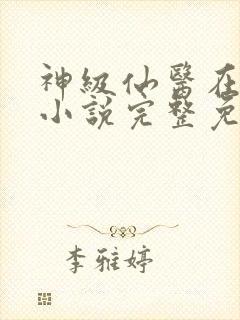 神級仙醫在
小說完整免
李雅婷